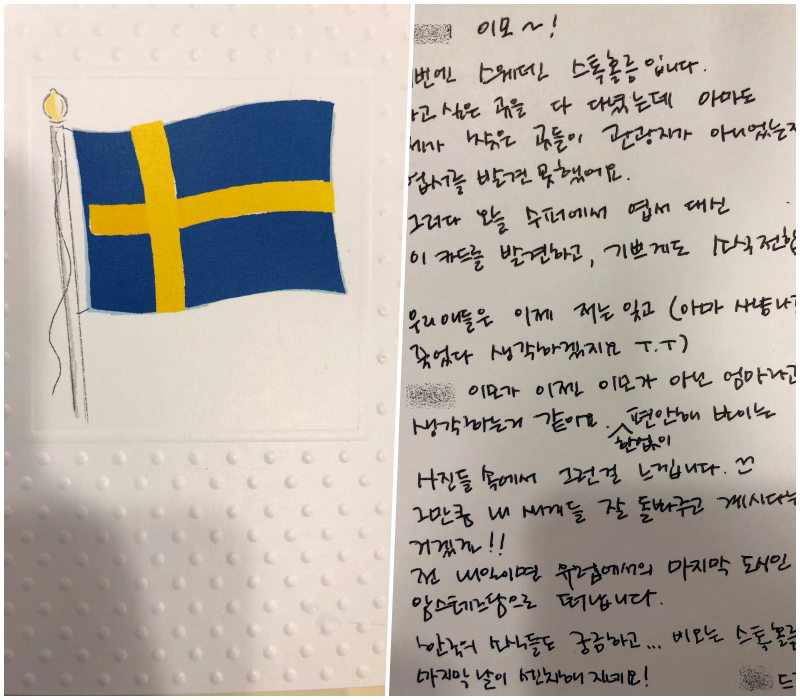 이모~!
번엔 스웨덴 스톡홀름입니다.
싶은 곳을 다 다녔는데 아마도
제가 찾은 곳들이 관광지가 아니었는지
엽서를 발견 못했어요.
그러다 오늘 수퍼에서 엽서 대신
이 카드를 발견하고, 기쁘게도 소식 전합
우리 애들은 이제 저는 잊고 (아마
죽었다 생각하겠지요 T.T)
이모가 이젠 이모가 아닌 엄마라고
생각하는거 같아요. 한없이 편안해 보이는
사진들 속에서 그런걸 느낍니다.
그만큼 내 새끼들 잘 돌봐주고 계시다는
거겠죠!!
전 내일이면 유럽에서의 마지막 도시인
암스테르담으로 떠납니다.
한국의 소식들도 궁금하고... 비오는 스톡홀름
마지막 날이 센치해지네요!
드